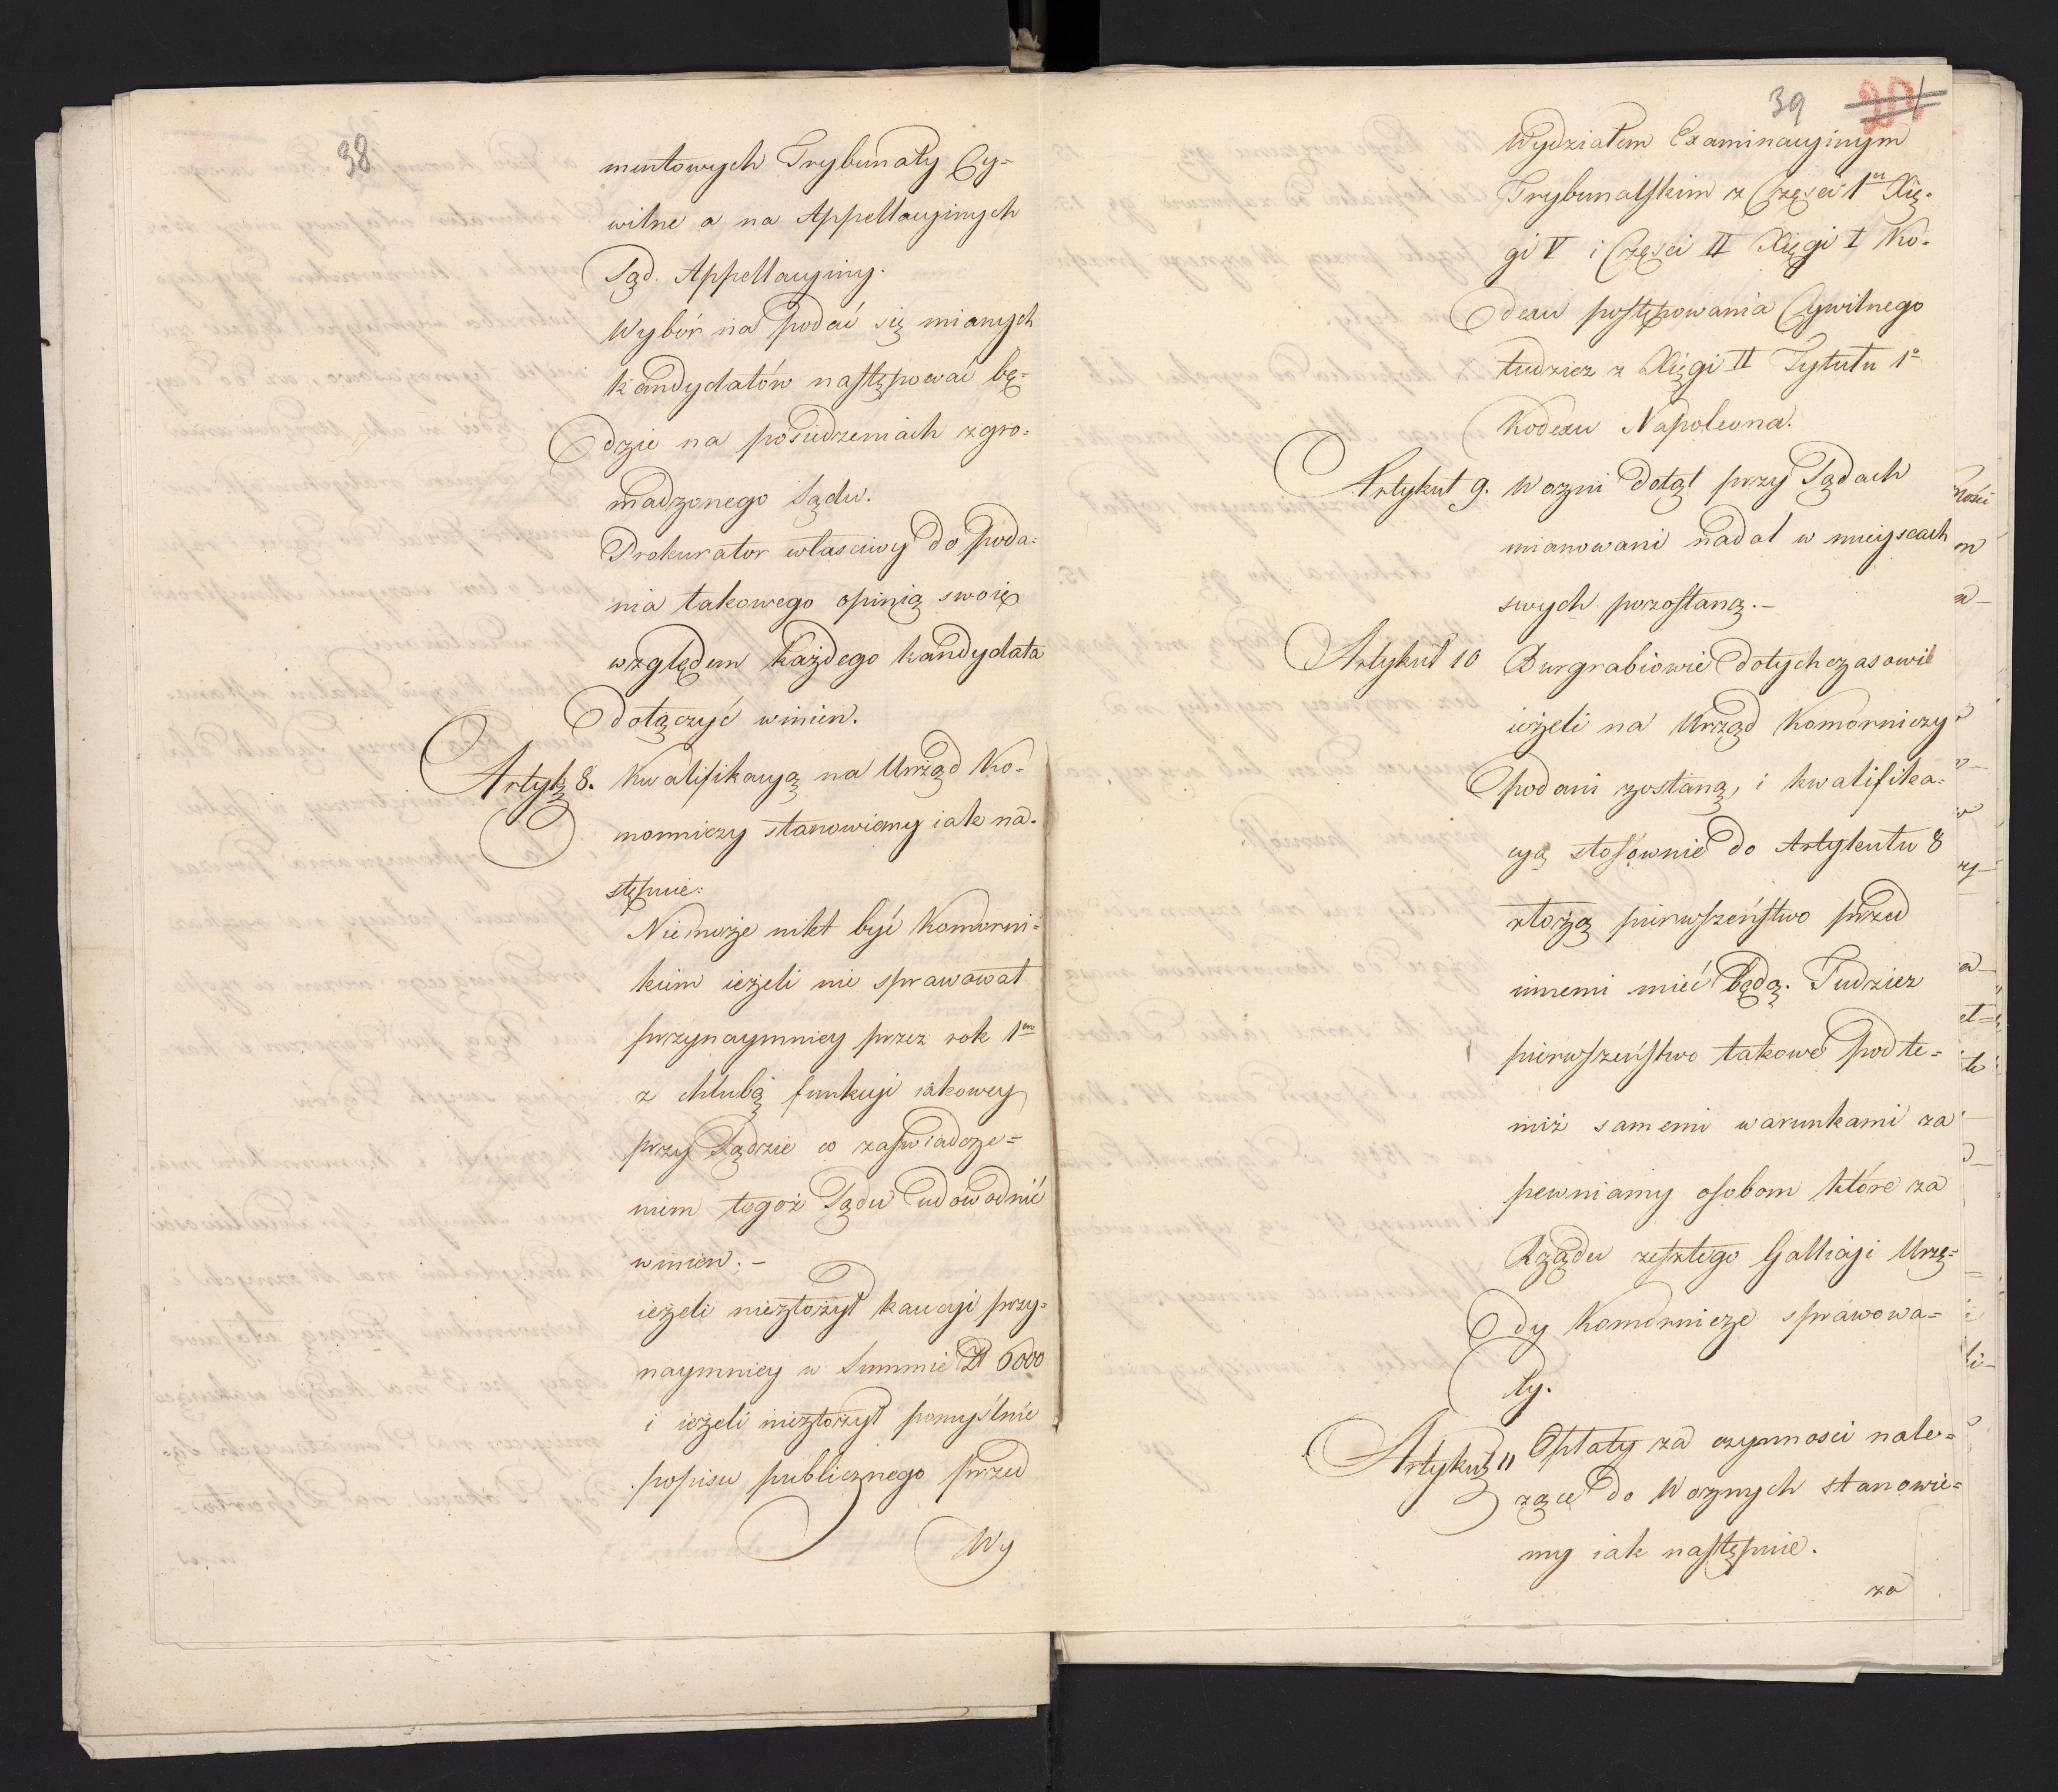 38
mentowych Trybunały Cy=
wilne a na Appellacyinych
Sąd. Appellacyiny.
Wybór na podać się mianych
kandydatów następować bę=
dzie na posiedzeniach zgro=
madzonego Sądu.
Prokurator właściwy do poda=
nia takowego opinią swoię
względem każdego kandydata
dołączyć winien.
Artyk 8. Kwalifikacyą na Urząd Ko=
morniczy stanowiemy iak na=
stępuie:
Niemoże nikt być Komorni=
kiem ieżeli nie sprawował
przynaymniey przez rok 1en
z chlubą funkcyi iakowey
przy Sądzie co zaświadcze=
niem tegoż Sądu udowodnić
winien. –
ieżeli niezłożył kaucyi przy=
naymniey w Summie Zł 6000
i ieżeli niezłożył pomyślnie
popisu publicznego przed
Wy
39
Wydziałem Examinacyinym
Trybunalskim z Części 1ey Xię=
gi V i Części II Xięgi I Ko=
dexu postępowania Cywilnego
tudziez z Xięgi II Tytułu 1o
Kodexu Napoleona.
Artykuł 9. Wozni dotąt przy Sądach
mianowani nadal w mieyscach
swych pozostaną. –
Artykuł 10 Burgrabiowie dotychczasowi
ieżeli na Urząd Komorniczy
podani zostaną, i kwalifika=
cyą stosownie do Artykułu 8
złożą pierwszeństwo przed
innemi mieć będą. Tudziez
pierwszeństwo takowe pod te=
miż samemi warunkami za
pewniamy osobom które za
Rządu zeszłego Galliciji Urzę=
dy Komornicze sprawowa=
ły.
Artykuł 11 Opłaty za czynnosci nale=
zące do Woznych stanowie=
my iak następuie.
za